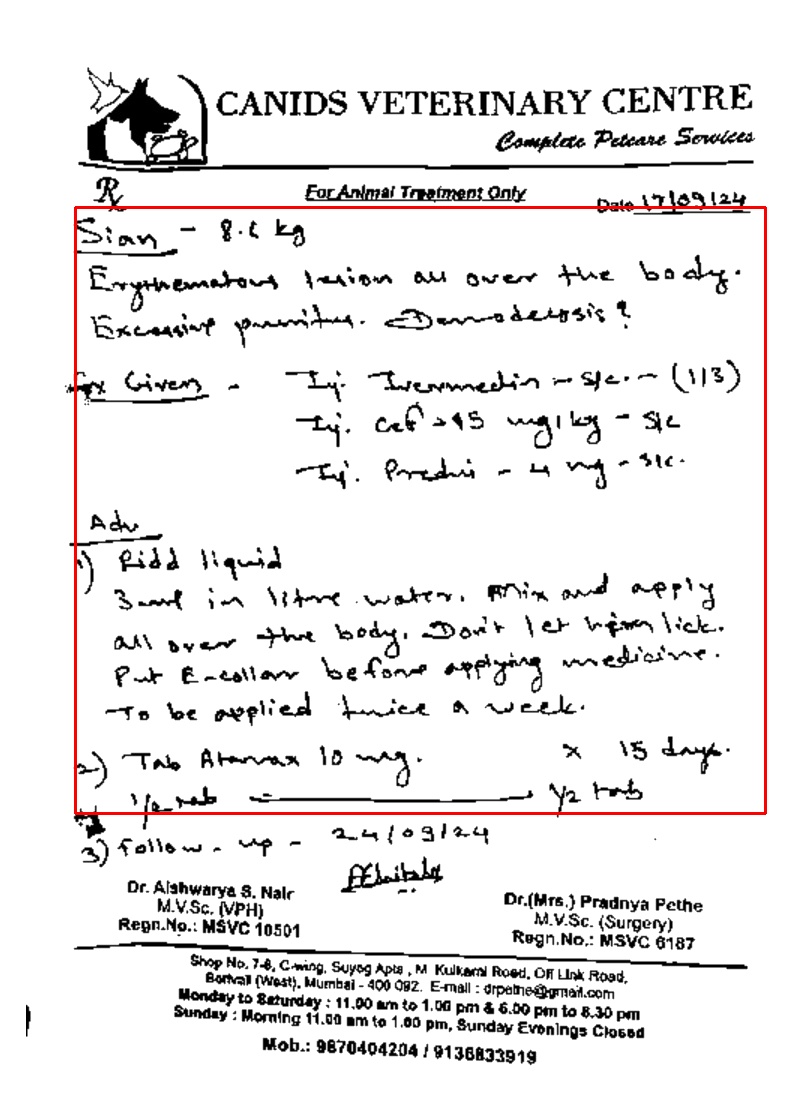 CANIDS VETERINARY CENTRE
Complete Petcare Services
Rx
For Animal Treatment Only
Date 17/09/24
Sian - 8.6 kg
Erythematous lesion all over the body.
Excessive pruritus. Demodecosis?
Given - Inj. Ivermectin - S/c. - (1/3)
Inj. Cef mg/kg - S/c
Inj. Predni - 4 mg - S/c.
Adv
1) Ridd liquid
3 ml in litre water. Mix and apply
all over the body. Don't let him lick.
Put E-collar before applying medicine.
To be applied twice a week.
2) Tab Atarax 10 mg. x 15 days.
1/2 tab ——— 1/2 tab
3) Follow-up - 24/09/24
Dr. Aishwarya S. Nair
M.V.Sc. (VPH)
Regn.No.: MSVC 10501
Dr.(Mrs.) Pradnya Pethe
M.V.Sc. (Surgery)
Regn.No.: MSVC 6187
Shop No. 7-8, C-wing, Suyog Apts., M. Kulkarni Road, Off Link Road,
Borivali (West), Mumbai - 400 092. E-mail : drpethe@gmail.com
Monday to Saturday : 11.00 am to 1.00 pm & 6.00 pm to 8.30 pm
Sunday : Morning 11.00 am to 1.00 pm, Sunday Evenings Closed
Mob.: 9870404204 / 9136833919